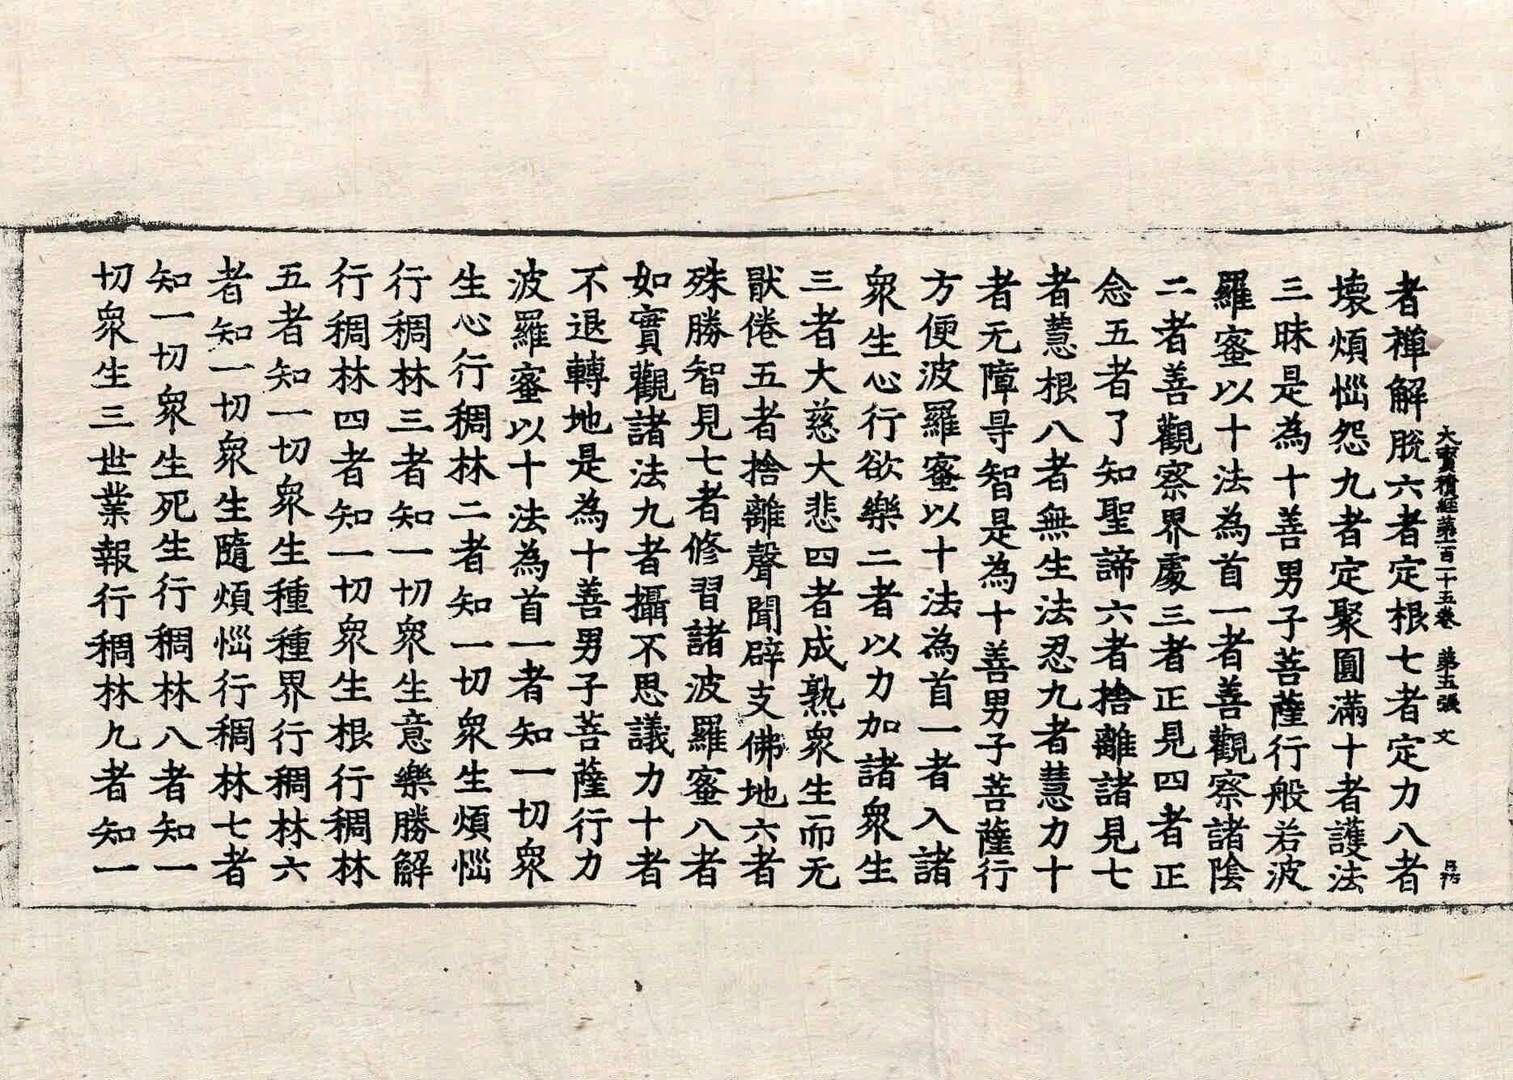 大寶積經第一百一十五卷 第五張 文
者禪解脫六者定根七者定力八者
壞煩惱怨九者定聚圓滿十者護法
三昧是為十善男子菩薩行般若波
羅蜜以十法為首一者善觀察諸陰
二者善觀察界處三者正見四者正
念五者了知聖諦六者捨離諸見七
者慧根八者無生法忍九者慧力十
者无障㝵智是為十善男子菩薩行
方便波羅蜜以十法為首一者入諸
衆生心行欲樂二者以力加諸衆生
三者大慈大悲四者成熟衆生而无
猒倦五者捨離聲聞辟支佛地六者
殊勝智見七者修習諸波羅蜜八者
如實觀諸法九者攝不思議力十者
不退轉地是為十善男子菩薩行力
波羅蜜以十法為首一者知一切衆
生心行稠林二者知一切衆生煩惱
行稠林三者知一切衆生意樂勝解
行稠林四者知一切衆生根行稠林
五者知一切衆生種種界行稠林六
者知一切衆生隨煩惱行稠林七者
知一切衆生死生行稠林八者知一
切衆生三世業報行稠林九者知一